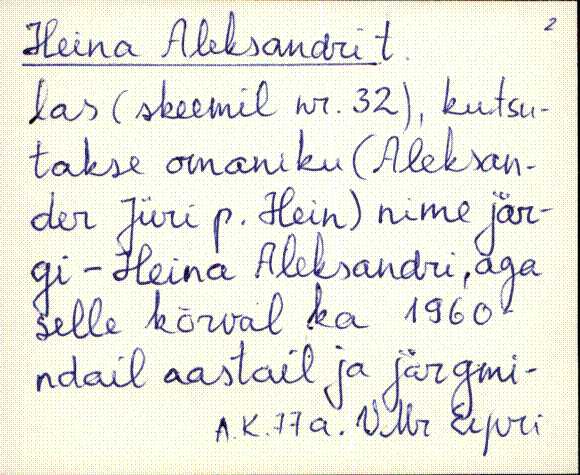 2
Heina Aleksandri t.
las (skeemil nr. 32), kutsu-
takse omaniku (Aleksan-
der Jüri p. Hein) nime jär-
gi - Heina Aleksandri, aga
selle kõrval ka 1960-
ndail aastail ja järgmi-
A.K. 77 a. VMr Eipri